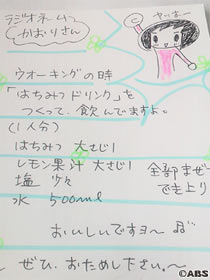 ラジオネーム
かおりさん
やっほー
ウオーキングの時
「はちみつドリンク」を
つくって、飲んでますよ。
(1人分)
はちみつ 大さじ1
レモン果汁 大さじ1
塩 少々
水 500ml
全部まぜ
でき上り
おいしいですヨ〜
ぜひ、おためし下さい。〜
©ABS